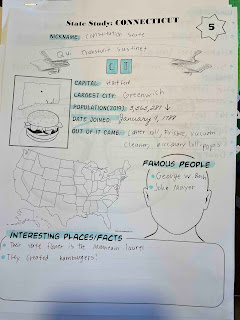 State Study: CONNECTICUT
5
NICKNAME: Constitution State
Qui Transtulit Sustinet
CT
CAPITAL: Hartford
LARGEST CITY: Greenwich
POPULATION(2019): 3,565,287 ↓
DATE JOINED: January 9, 1788
OUT OF IT CAME: Frisbie, vacuum
cleaner, lollipops
FAMOUS PEOPLE
George W. Bush
John Mayer
INTERESTING PLACES/FACTS
Their state flower is the Mountain laurel
They created hamburgers!